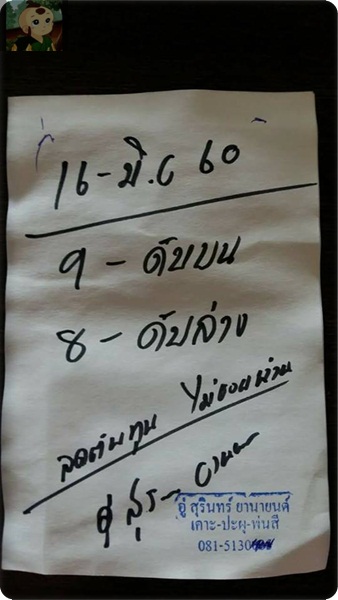 16-มิ.ย 60
9 - ดับบน
8 - ดับล่าง
ลดต้นทุน ไม่ชอบผ่าน
อู่ สุร
อู่ สุรินทร์ ยานายนต์
เคาะ-ปะผุ-พ่นสี
081-5130